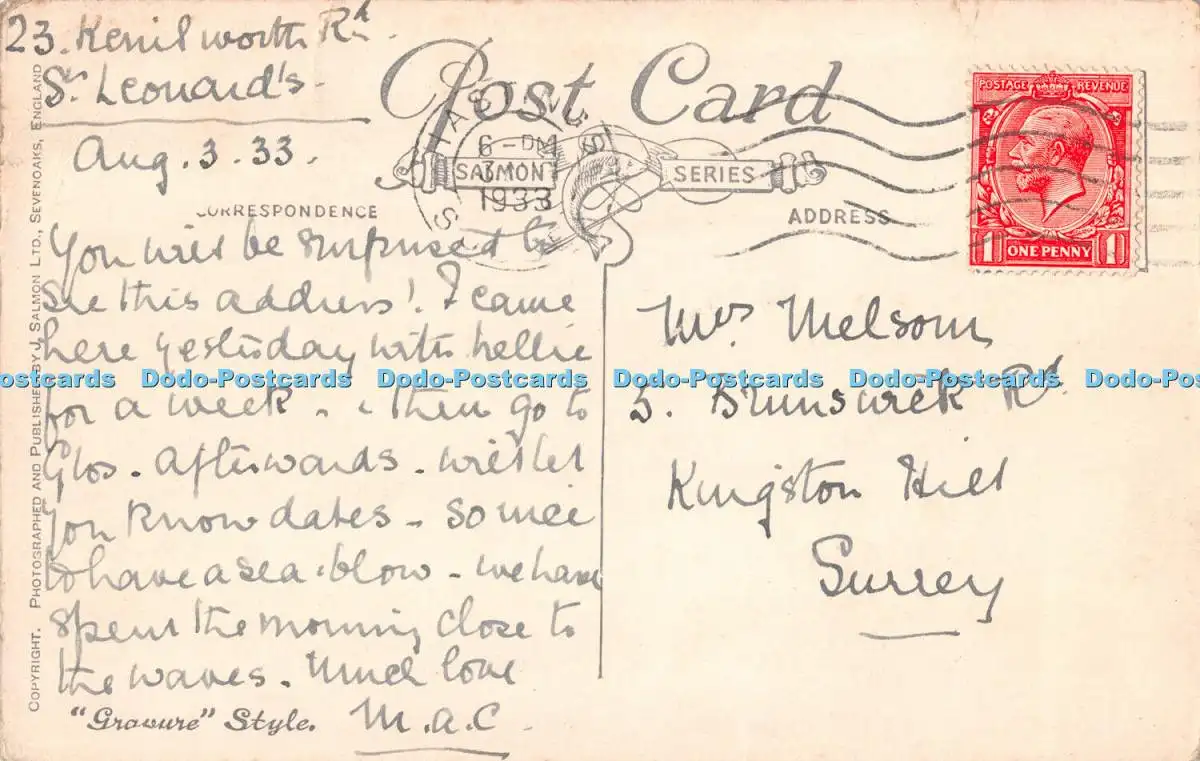 23. Kenilworth Rd.
St Leonard's
Aug. 3. 33.
Post Card
HASTINGS
6 - PM
3
1933
SALMON SERIES
POSTAGE REVENUE
1 ONE PENNY 1
CORRESPONDENCE
ADDRESS
You will be surprised to
see this address! I came
here yesterday with Nellie
for a week - & then go to
Glos. afterwards - will let
you know dates - So nice
to have a sea-blow - we have
spent the morning close to
the waves. Much love
M.A.C.
Mrs Melsom,
5. Brunswick Rd.
Kingston Hill
Surrey
Dodo-Postcards Dodo-Postcards Dodo-Postcards Dodo-Postcards Dodo-Postcards Dodo-Postcards
"Gravure" Style.
COPYRIGHT. PHOTOGRAPHED AND PUBLISHED BY J. SALMON LTD., SEVENOAKS, ENGLAND